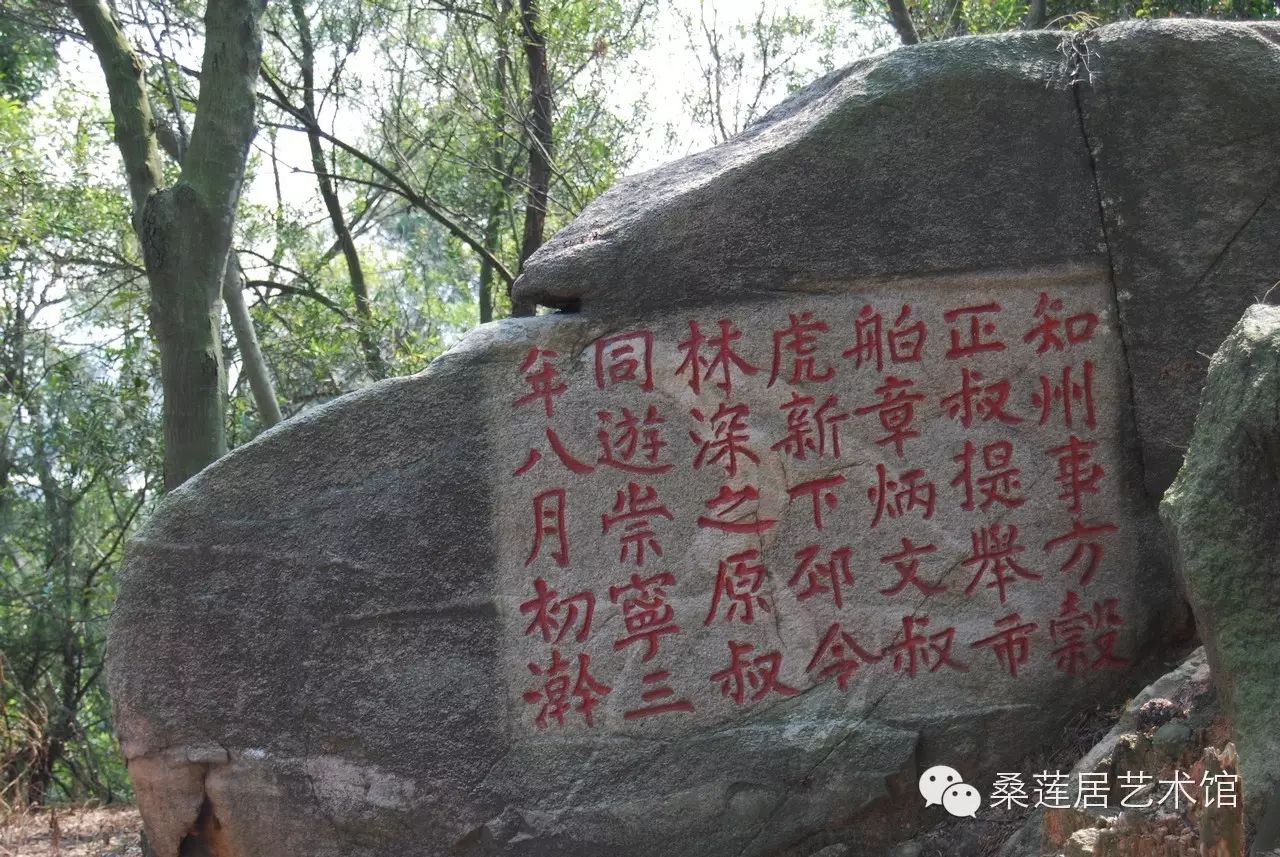 知州事方穀
正叔提舉市
舶章炳文叔
虎新下邳令
林深之原叔
同遊崇寧三
年八月初澣
桑莲居艺术馆